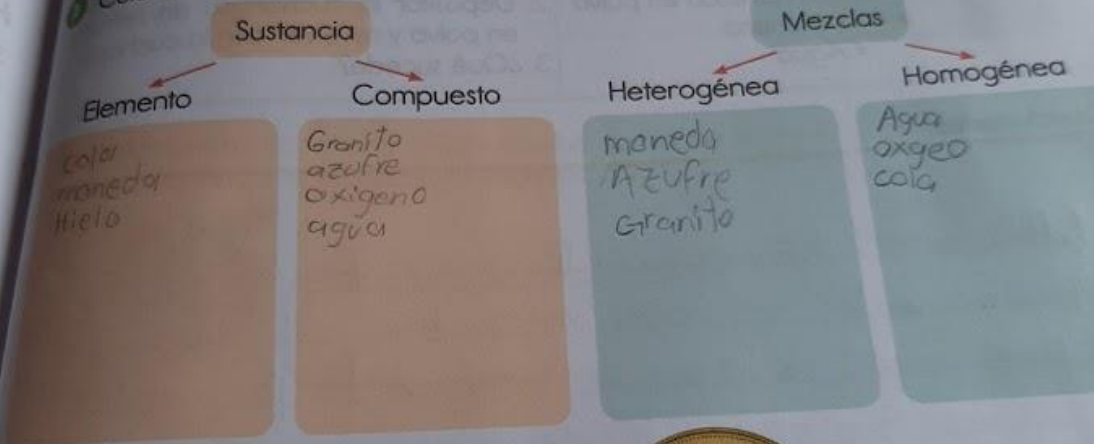 Sustancia
Mezclas
Elemento
Compuesto
Heterogénea
Homogénea
cola
moneda
Hielo
Granito
azufre
oxigeno
agua
moneda
Azufre
Granito
Agua
oxgeo
cola